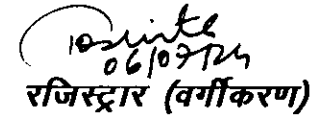 06/07/24
रजिस्ट्रार (वर्गीकरण)